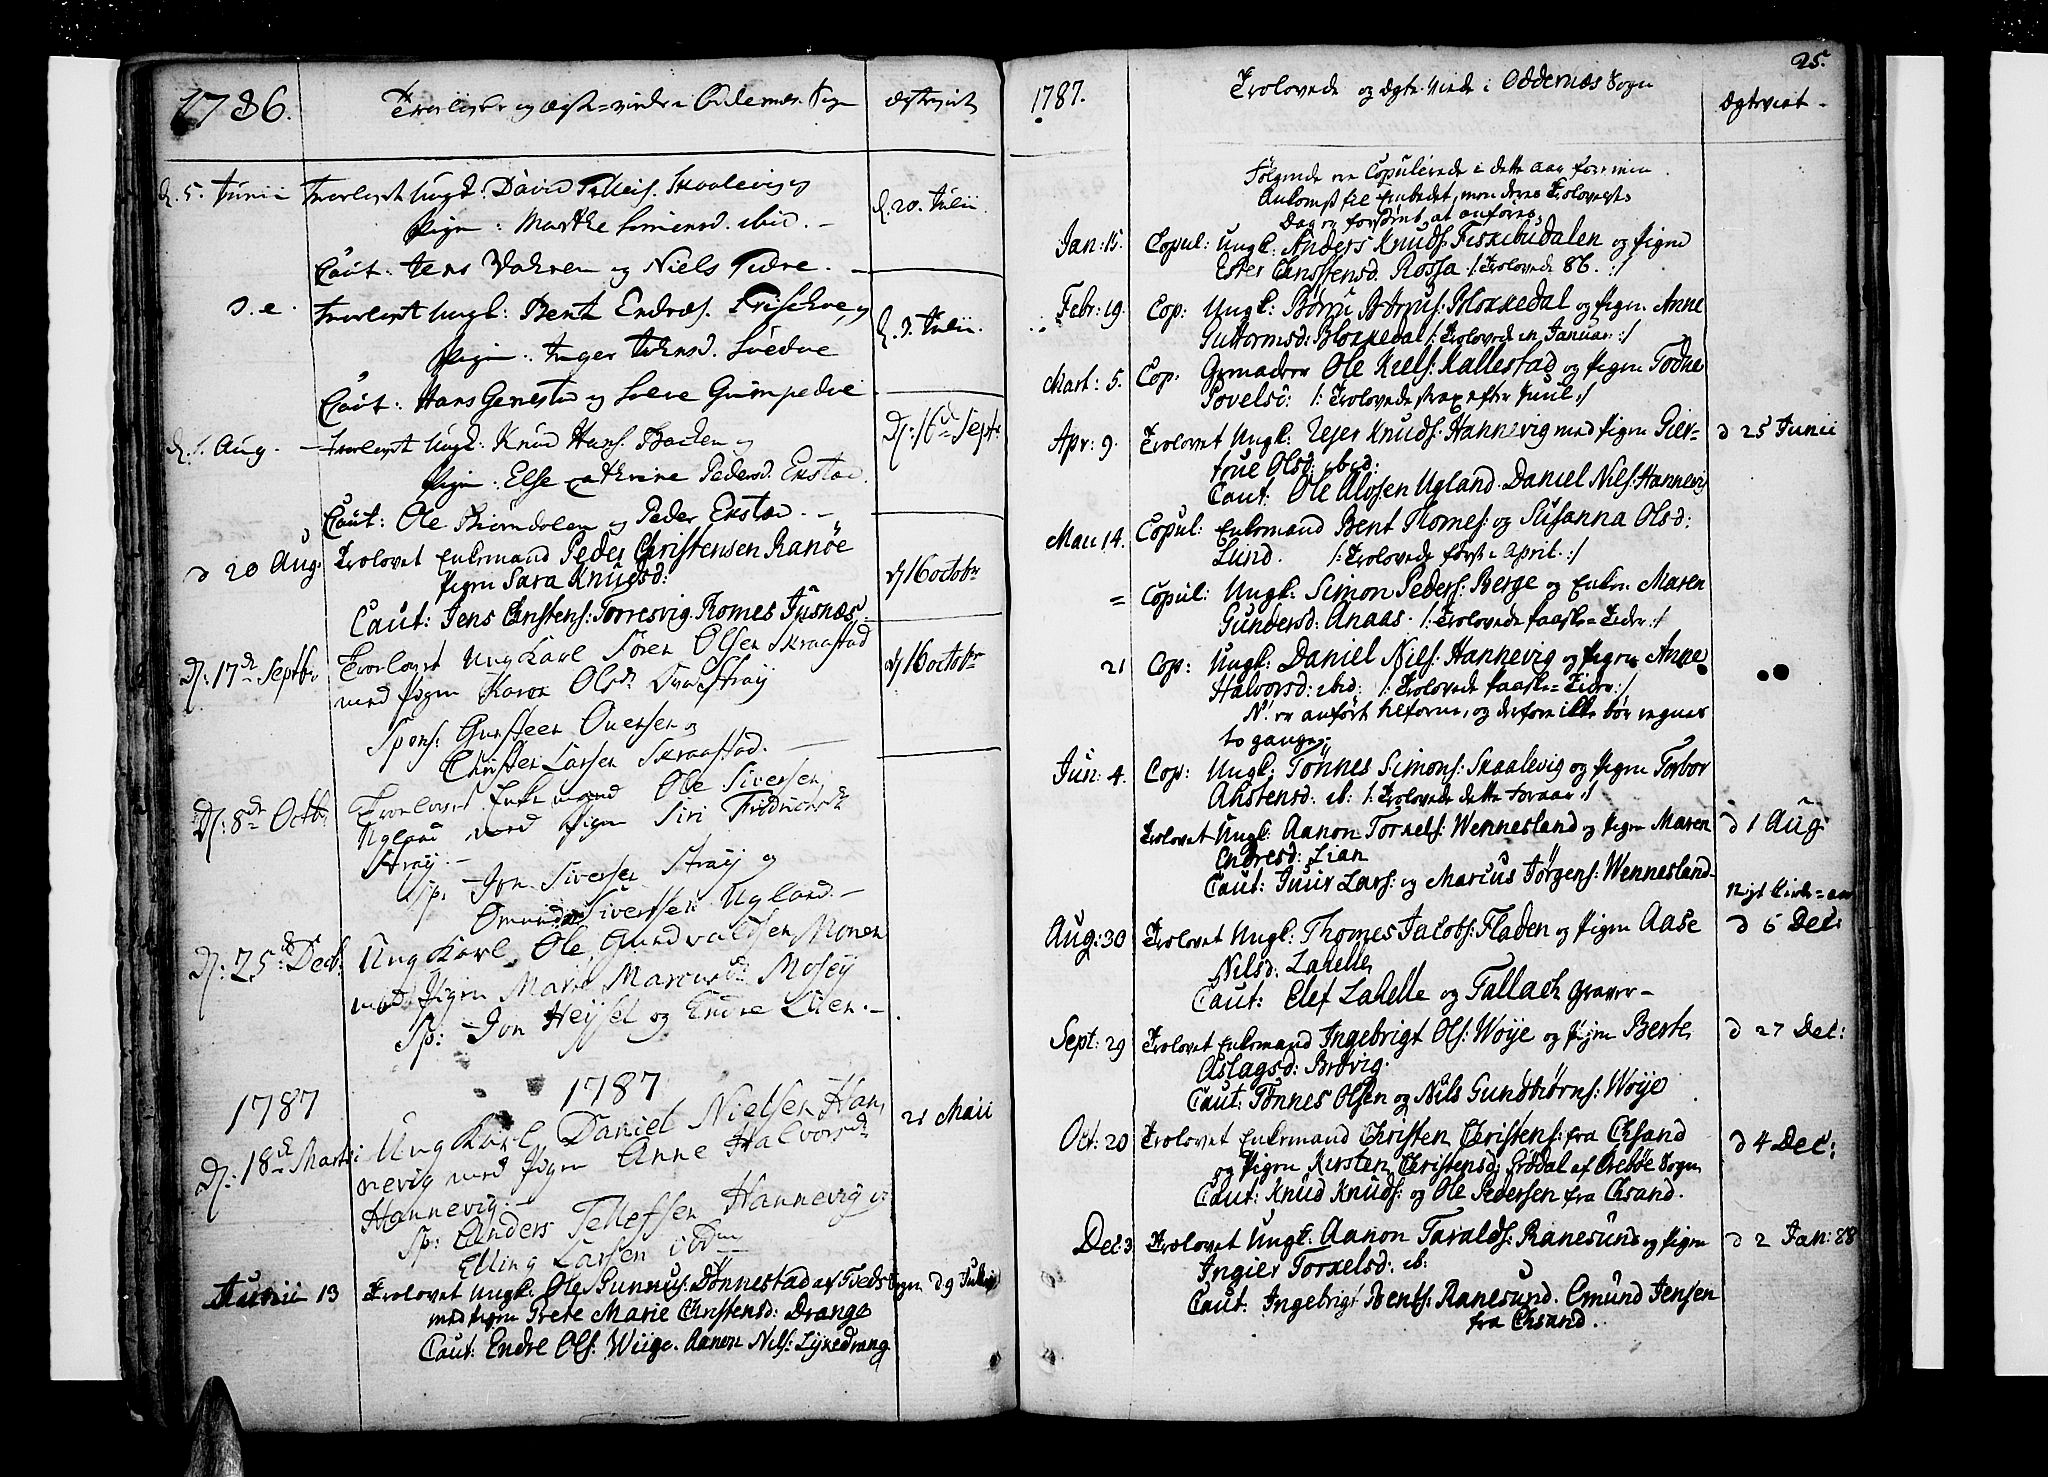 1786.
Trolovede og ægte-viede i Oddernæs Sogn
ægtevviet
d. 5. Junii Trolovet Ungk: David Tellefs. Skaalevig og
Pigen: Marthe Simensd. ibid. –
d. 20. Julii.
Caut: Jens Vahren og Niels Tidre. –
d. e. Trolovet Ungk: Bent Endres.
Pigen: Inger
d. 9. Julii.
Caut: Hans Gimestad og
d. 1. Aug. – Trolovet Ungk: Knud Hans. Backen og
Pigen: Else Cathrine Pedersd. Eigstad.
D: 16d Septr
Caut: Ole og Peder Eegstad. –
d 20 Aug: Trolovet Enkemand Peder Christensen Ranöe
Pigen Sara Knudsd:
d 16 octobr
Caut: Jens Christens: Torresvig. Thomes Jusnæs
D: 17de Septbr Trolovet Ung Karl Sören Olsen Skraastad
med Pigen Karen Olsd: Straÿ
d 16 octobr
Spons: Gunsteen Ouensen og
Christen Larsen Skraastad.
D: 8de Octb: Trolovet Enkemand Ole Siversen
Ugland med Pigen Siri Fridrichsd:
Straÿ –
Sp: – Jon Siversen Straÿ og
Omund Siversen Ugland. –
D: 25de Decb: Ung Karl Ole Gundvaldsen Monen
med Pigen Marie Marcusd: Moseÿ
Sp: – Jon Heÿsel og Endre Lien. –
1787 1787
D: 18de Martii Ung Karl Daniel Nielsen Han,
nevig med Pigen Anne Halvorsd:
Hannevig. –
21 Maii
Sp: Anders Tellefsen Hannevig og
Elling Larsen ibdm
Junii 13 Trolovet Ungk: Ole Gunnus: Dönnestad af Tveds Sogn d 9 Julii
med Pigen Grete Marie Christensd: Drange
Caut: Endre Ols: Wiige. Aanon Nils: Lÿkedrang
25.
1787.
Trolovede og ægte-viede i Oddernæs Sogn
Ægteviet –
Fölgende ere Copulerede i dette aar för min
Ankomst til Embedet, men deres Trolovelses
Dag er forsömt at anföres,
Jan: 15. Copul: Ungk: Anders Knuds: Fiskebudalen og Pigen
Ester Christensd: Rossa /: Trolovede 86. :/
Febr: 19. Cop: Ungk: Börju Börjus: Blokkedal og Pigen Anne
Guttormsd: Blokkedal /: Trolovede in Januar :/
Mart: 5. Cop: Ole Kiels: Kallestad og Pigen Todne
Povelsd: /: Trolovede strax efter Juul :/
Apr: 9. Trolovet Ungk: Rejer Knuds: Hannevig med Pigen Gier=
true Olsd: ibid:
d 25 Junii
Caut: Ole Alofsen Ugland. Daniel Nils: Hannevig
Maii 14. Copul: Enkemand Bent Thomes: og Susanna Olsd:
Lund. /: Trolovede först i April. :/
= Copul: Ungk: Simon Peders: Berge og Enken Maren
Gundersd: Anaas. /: Trolovede Paaske=Tider :/
21 Cop: Ungk: Daniel Nils: Hannevig og Pigen Anne
Halvorsd: ibid: /: Trolovede Paaske=Tider :/
N: er anfört tilforne, og derfore ikke bör regnes
to gange.
Jun: 4. Cop: Ungk: Tönnes Simons: Skaalevig og Pigen Torbor
Ahstensd: ib: /: Trolovede dette Foraar :/
Trolovet Ungk: Aanon Torkels: Wennesland og Pigen Maren
Endresd: Lian
d 1 Aug:
Caut: Juur Lars: og Marcus Jörgens: Wennesland.
Nÿt Kirke=aar
Aug: 30 Trolovet Ungk: Thomes Jacobs: Fladen og Pigen Aase
Nilsd: Lahelle
d 6 Dec:
Caut: Elef Lahelle og Tallach Graver –
Sept: 29 Trolovet Enkemand Ingebrigt Ols: Woÿe og Pigen Berte
Aslagsd: Brövig.
d 27 Dec:
Caut: Tönnes Olsen og Nils Gundbiörns: Woÿe
Oct: 20 Trolovet Enkemand Christen Christens: fra Chsand
og Pigen Kirsten Christensd: Grödal af Sogn
d 4 Dec:
Caut: Knud Knuds: og Ole Pedersen fra Chsand.
Dec: 3 Trolovet Ungk: Aanon Taralds: Ranesund og Pigen
Ingier Torkelsd: ib:
d 2 Jan: 88
Caut: Ingebrigt Bents: Ranesund. Omund Jensen
fra Chsand.